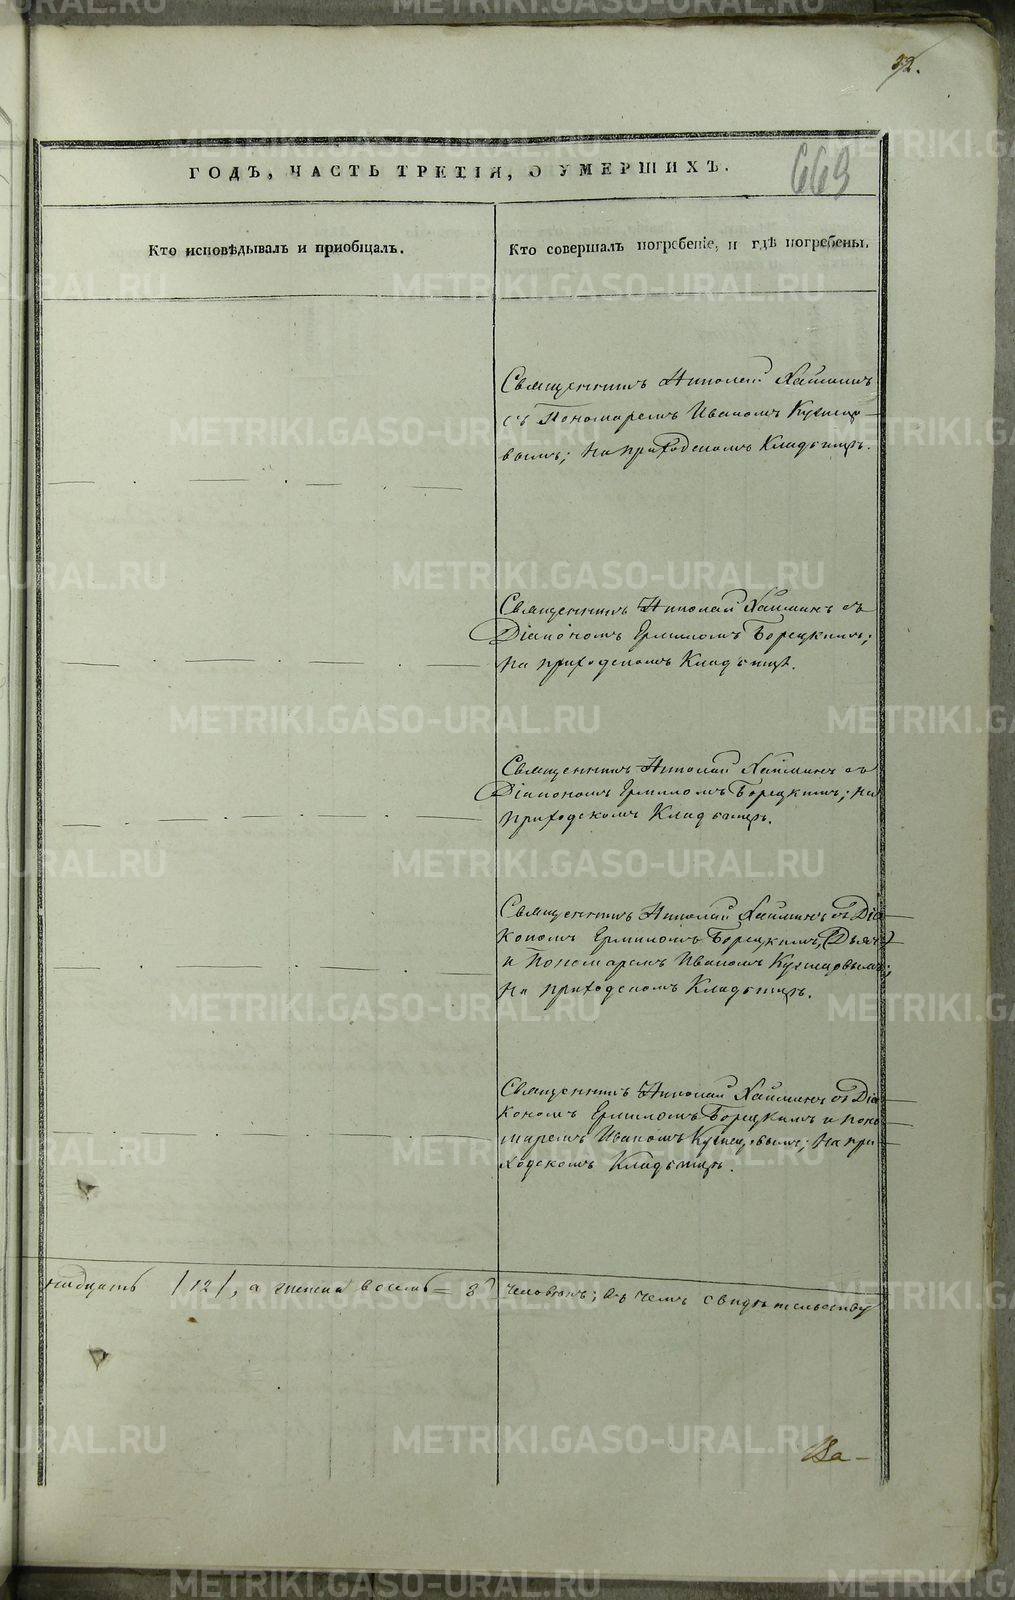 32.
ГОДЪ, ЧАСТЬ ТРЕТІЯ, О УМЕРШИХЪ.
669
Кто исповѣдывалъ и приобщалъ.
Кто совершалъ погребеніе, и гдѣ погребены.
Священникъ Николай Хаймин
съ Пономаремъ Иваномъ Кузнецо-
вымъ; на приходскомъ Кладбищѣ.
Священникъ Николай Хайминъ съ
Діакономъ Ермиломъ Борецкимъ;
на приходскомъ Кладбищѣ.
Священникъ Николай Хайминъ съ
Діакономъ Ермиломъ Борецкимъ; на
приходскомъ Кладбищѣ.
Священникъ Николай Хайминъ съ Діа-
кономъ Ермиломъ Борецкимъ,
и Пономаремъ Иваномъ Кузнецовымъ;
на приходскомъ Кладбищѣ.
Священникъ Николай Хайминъ съ Діа-
кономъ Ермиломъ Борецкимъ и поно-
маремъ Иваномъ Кузнецовымъ; на при-
ходскомъ Кладбищѣ.
надцать /12/, а женска восемь = 8 человѣкъ; въ чемъ свидѣтельству
За-
METRIKI.GASO-URAL.RU